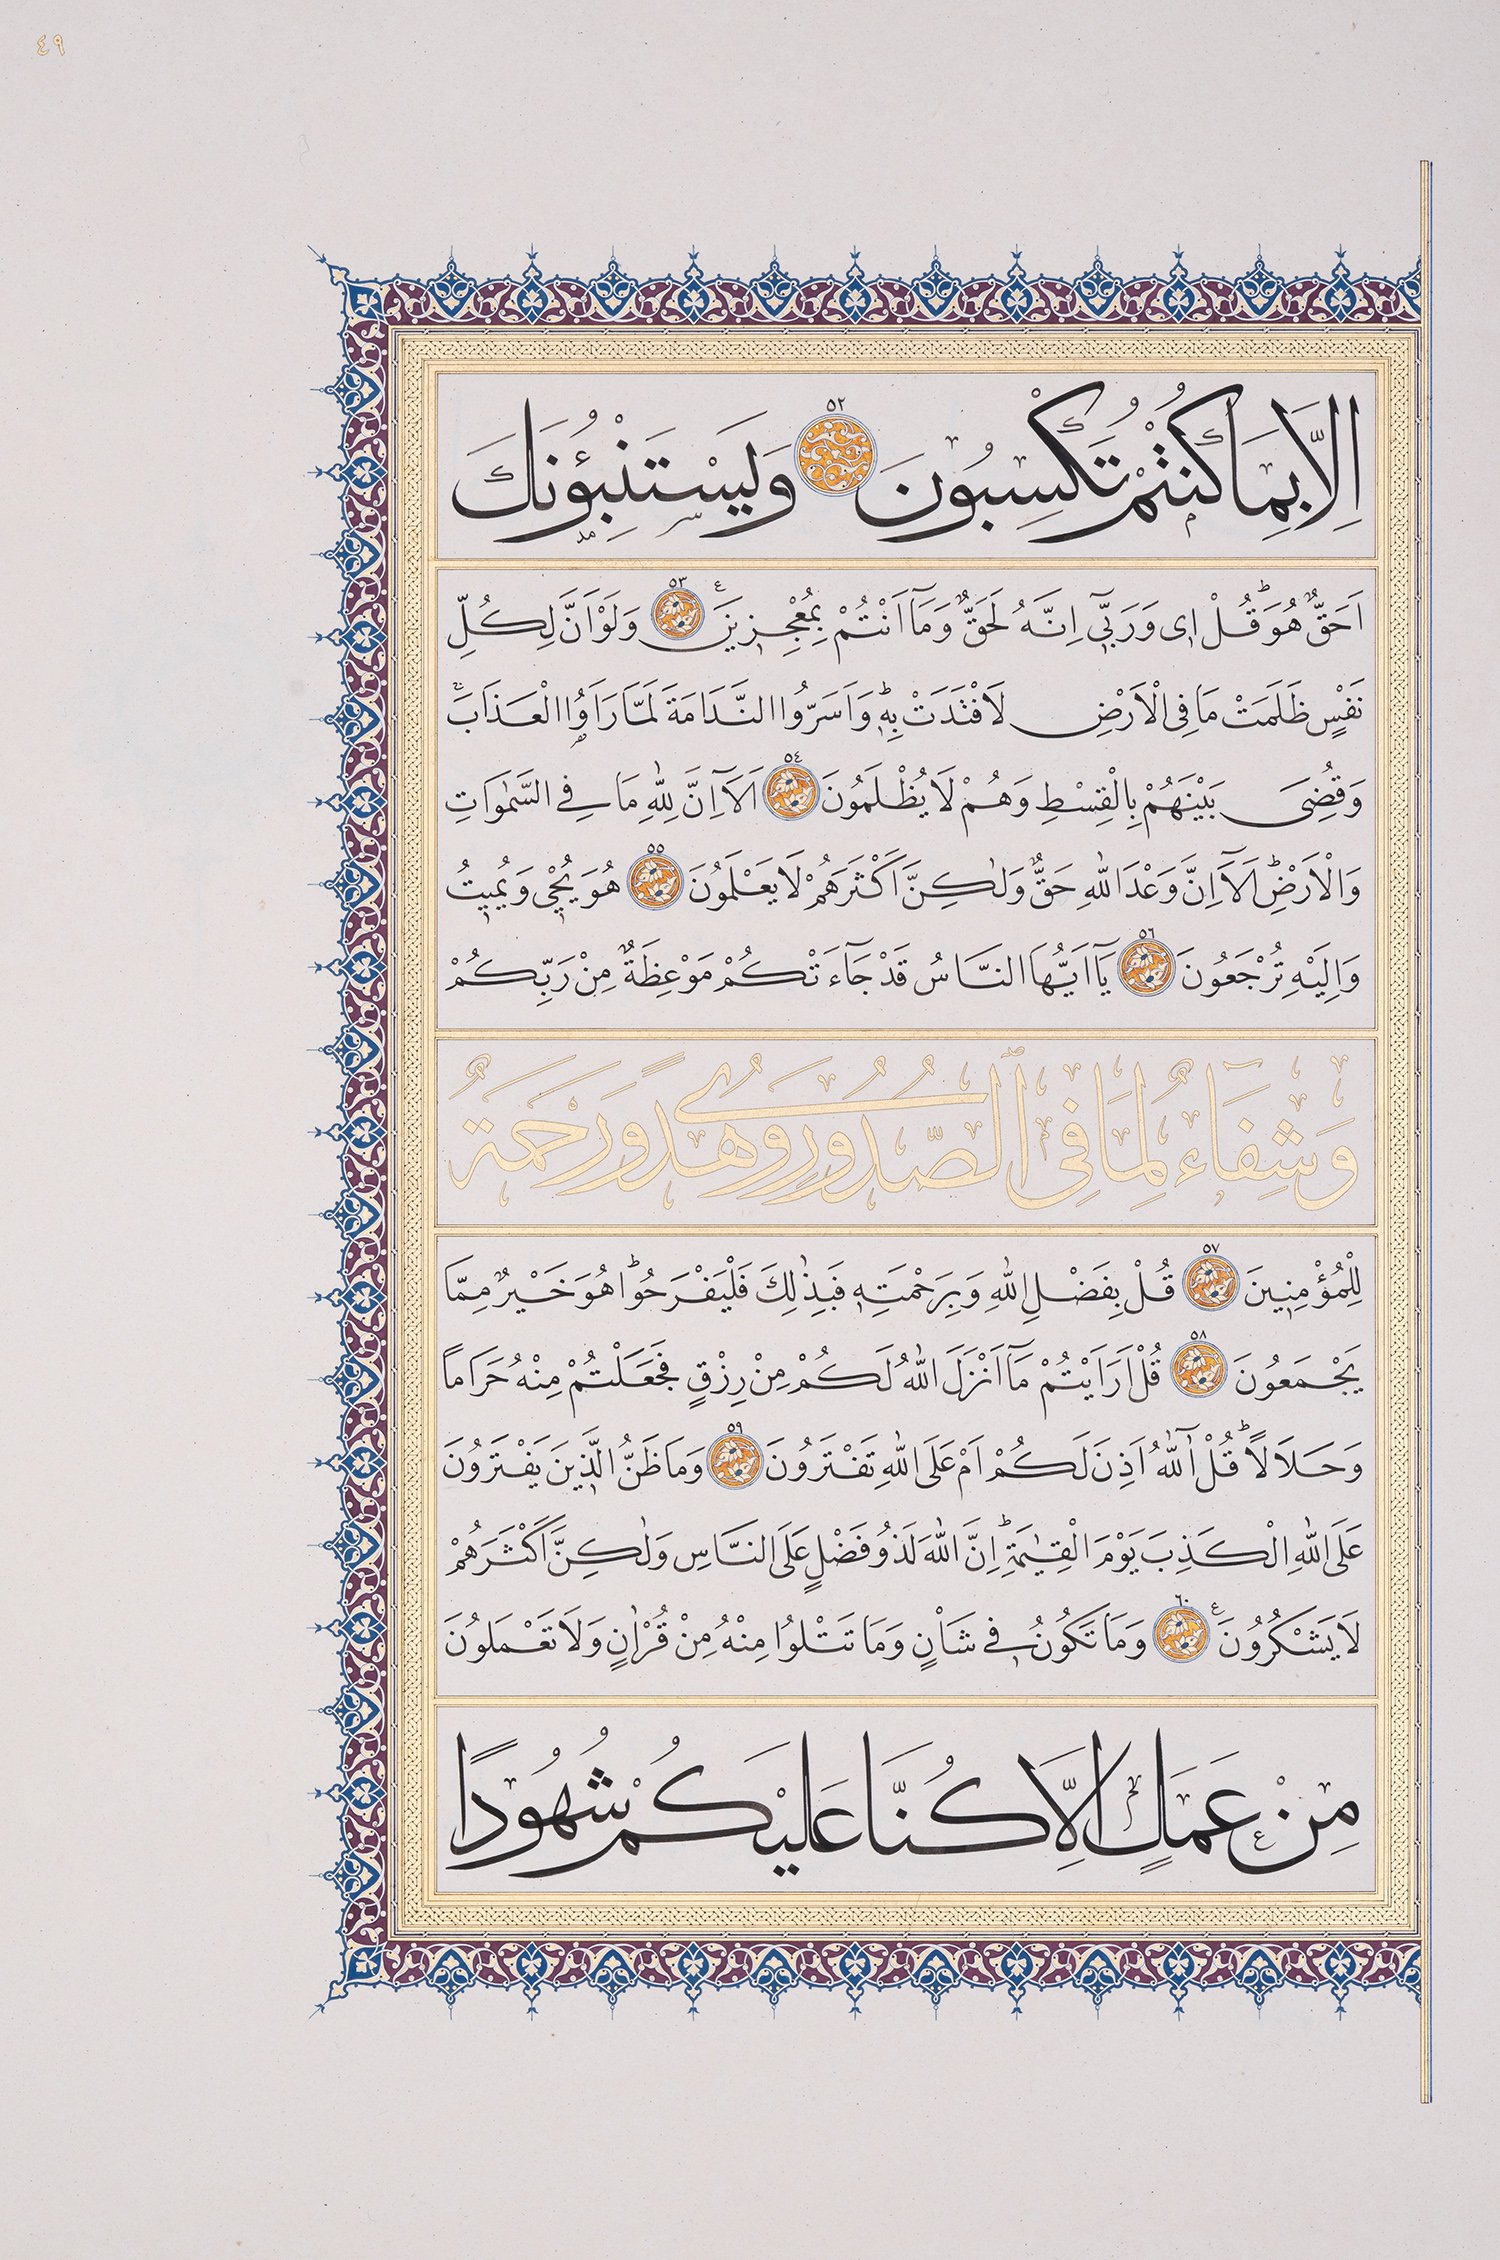 ٤٩
اِلَّا بِمَا كُنْتُمْ تَكْسِبُونَ ٥٢ وَيَسْتَنْبِؤُنَكَ
اَحَقٌّ هُوَ قُلْ اِى وَرَبِّىٓ اِنَّهُ لَحَقٌّ وَمَٓا اَنْتُمْ بِمُعْجِزِينَ ٥٣ وَلَوْ اَنَّ لِكُلِّ
نَفْسٍ ظَلَمَتْ مَا فِى الْاَرْضِ لَافْتَدَتْ بِهِ وَاَسَرُّوا النَّدَامَةَ لَمَّا رَاَوُا الْعَذَابَ
وَقُضِىَ بَيْنَهُمْ بِالْقِسْطِ وَهُمْ لَا يُظْلَمُونَ ٥٤ اَلَٓا اِنَّ لِلّٰهِ مَا فِى السَّمٰوَاتِ
وَالْاَرْضِ اَلَٓا اِنَّ وَعْدَ اللّٰهِ حَقٌّ وَلٰكِنَّ اَكْثَرَهُمْ لَا يَعْلَمُونَ ٥٥ هُوَ يُحْيِ وَيُمِيتُ
وَاِلَيْهِ تُرْجَعُونَ ٥٦ يَٓا اَيُّهَا النَّاسُ قَدْ جَٓاءَتْكُمْ مَوْعِظَةٌ مِنْ رَبِّكُمْ
وَشِفَٓاءٌ لِمَا فِى الصُّدُورِ وَهُدًى وَرَحْمَةٌ
لِلْمُؤْمِنِينَ ٥٧ قُلْ بِفَضْلِ اللّٰهِ وَبِرَحْمَتِهِ فَبِذٰلِكَ فَلْيَفْرَحُوا هُوَ خَيْرٌ مِمَّا
يَجْمَعُونَ ٥٨ قُلْ اَرَاَيْتُمْ مَٓا اَنْزَلَ اللّٰهُ لَكُمْ مِنْ رِزْقٍ فَجَعَلْتُمْ مِنْهُ حَرَامًا
وَحَلَالًا قُلْ آٰللّٰهُ اَذِنَ لَكُمْ اَمْ عَلَى اللّٰهِ تَفْتَرُونَ ٥٩ وَمَا ظَنُّ الَّذِينَ يَفْتَرُونَ
عَلَى اللّٰهِ الْكَذِبَ يَوْمَ الْقِيٰمَةِ اِنَّ اللّٰهَ لَذُو فَضْلٍ عَلَى النَّاسِ وَلٰكِنَّ اَكْثَرَهُمْ
لَا يَشْكُرُونَ ٦٠ وَمَا تَكُونُ فِى شَاْنٍ وَمَا تَتْلُوا مِنْهُ مِنْ قُرْاٰنٍ وَلَا تَعْمَلُونَ
مِنْ عَمَلٍ اِلَّا كُنَّا عَلَيْكُمْ شُهُودًا